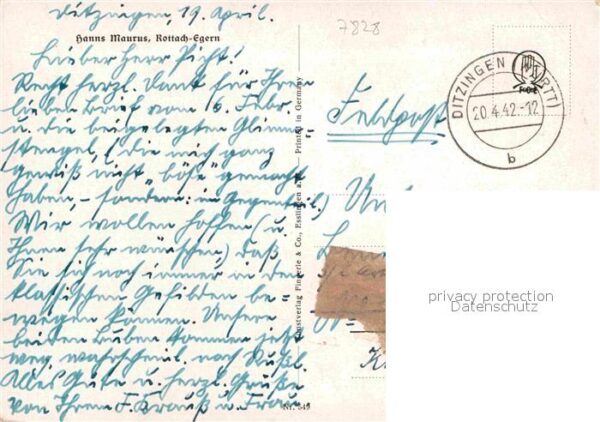 Ditzingen, 19. April.
Hanns Maurus, Rottach-Egern
Lieber Herr Picht!
Recht herzl. Dank für Ihren
lieben Brief vom 6. Febr.
u. die beigelegten Glimm-
stengel, (die mich ganz
gewiß nicht "böse" gemacht
haben, - sondern: im Gegenteil.)
Wir wollen hoffen (u.
Ihnen sehr wünschen,) daß
Sie sich noch immer in den
klassischen Gefilden be-
wegen können. Unsere
beiden Buben kommen jetzt
weg, wahrscheinl. nach Rußl.
Alles Gute u. herzl. Grüße
von Ihrem F. Krauß u. Frau.
7828
Feldpost
DITZINGEN (WÜRTT)
20.4.42.-12
b
Kunstverlag Fingerle & Co., Esslingen a. N. — Printed in Germany
Nr. 549
privacy protection
Datenschutz